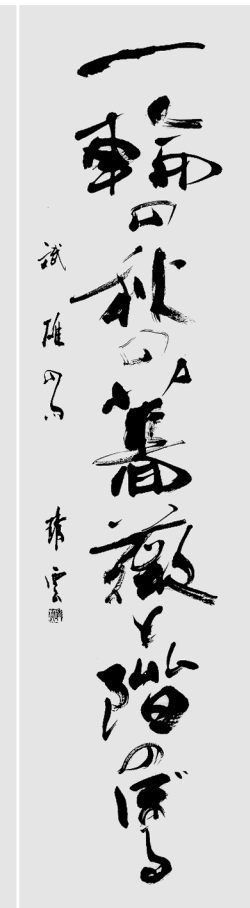 一輪の秋の薔薇と階のぼる
誠雄の句 靖雲